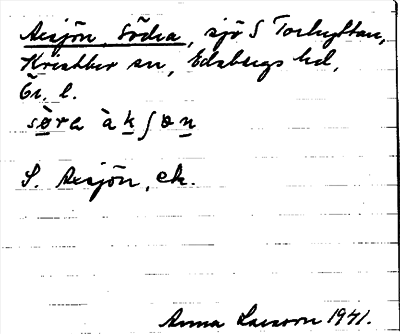 Axsjön, Södra, sjö S Torhyttan,
Kvistbro sn, Edsbergs hd,
Ör. l.
sø̀ra àkʃøn
S. Axsjön, ek.
Anna Larsson 1941.